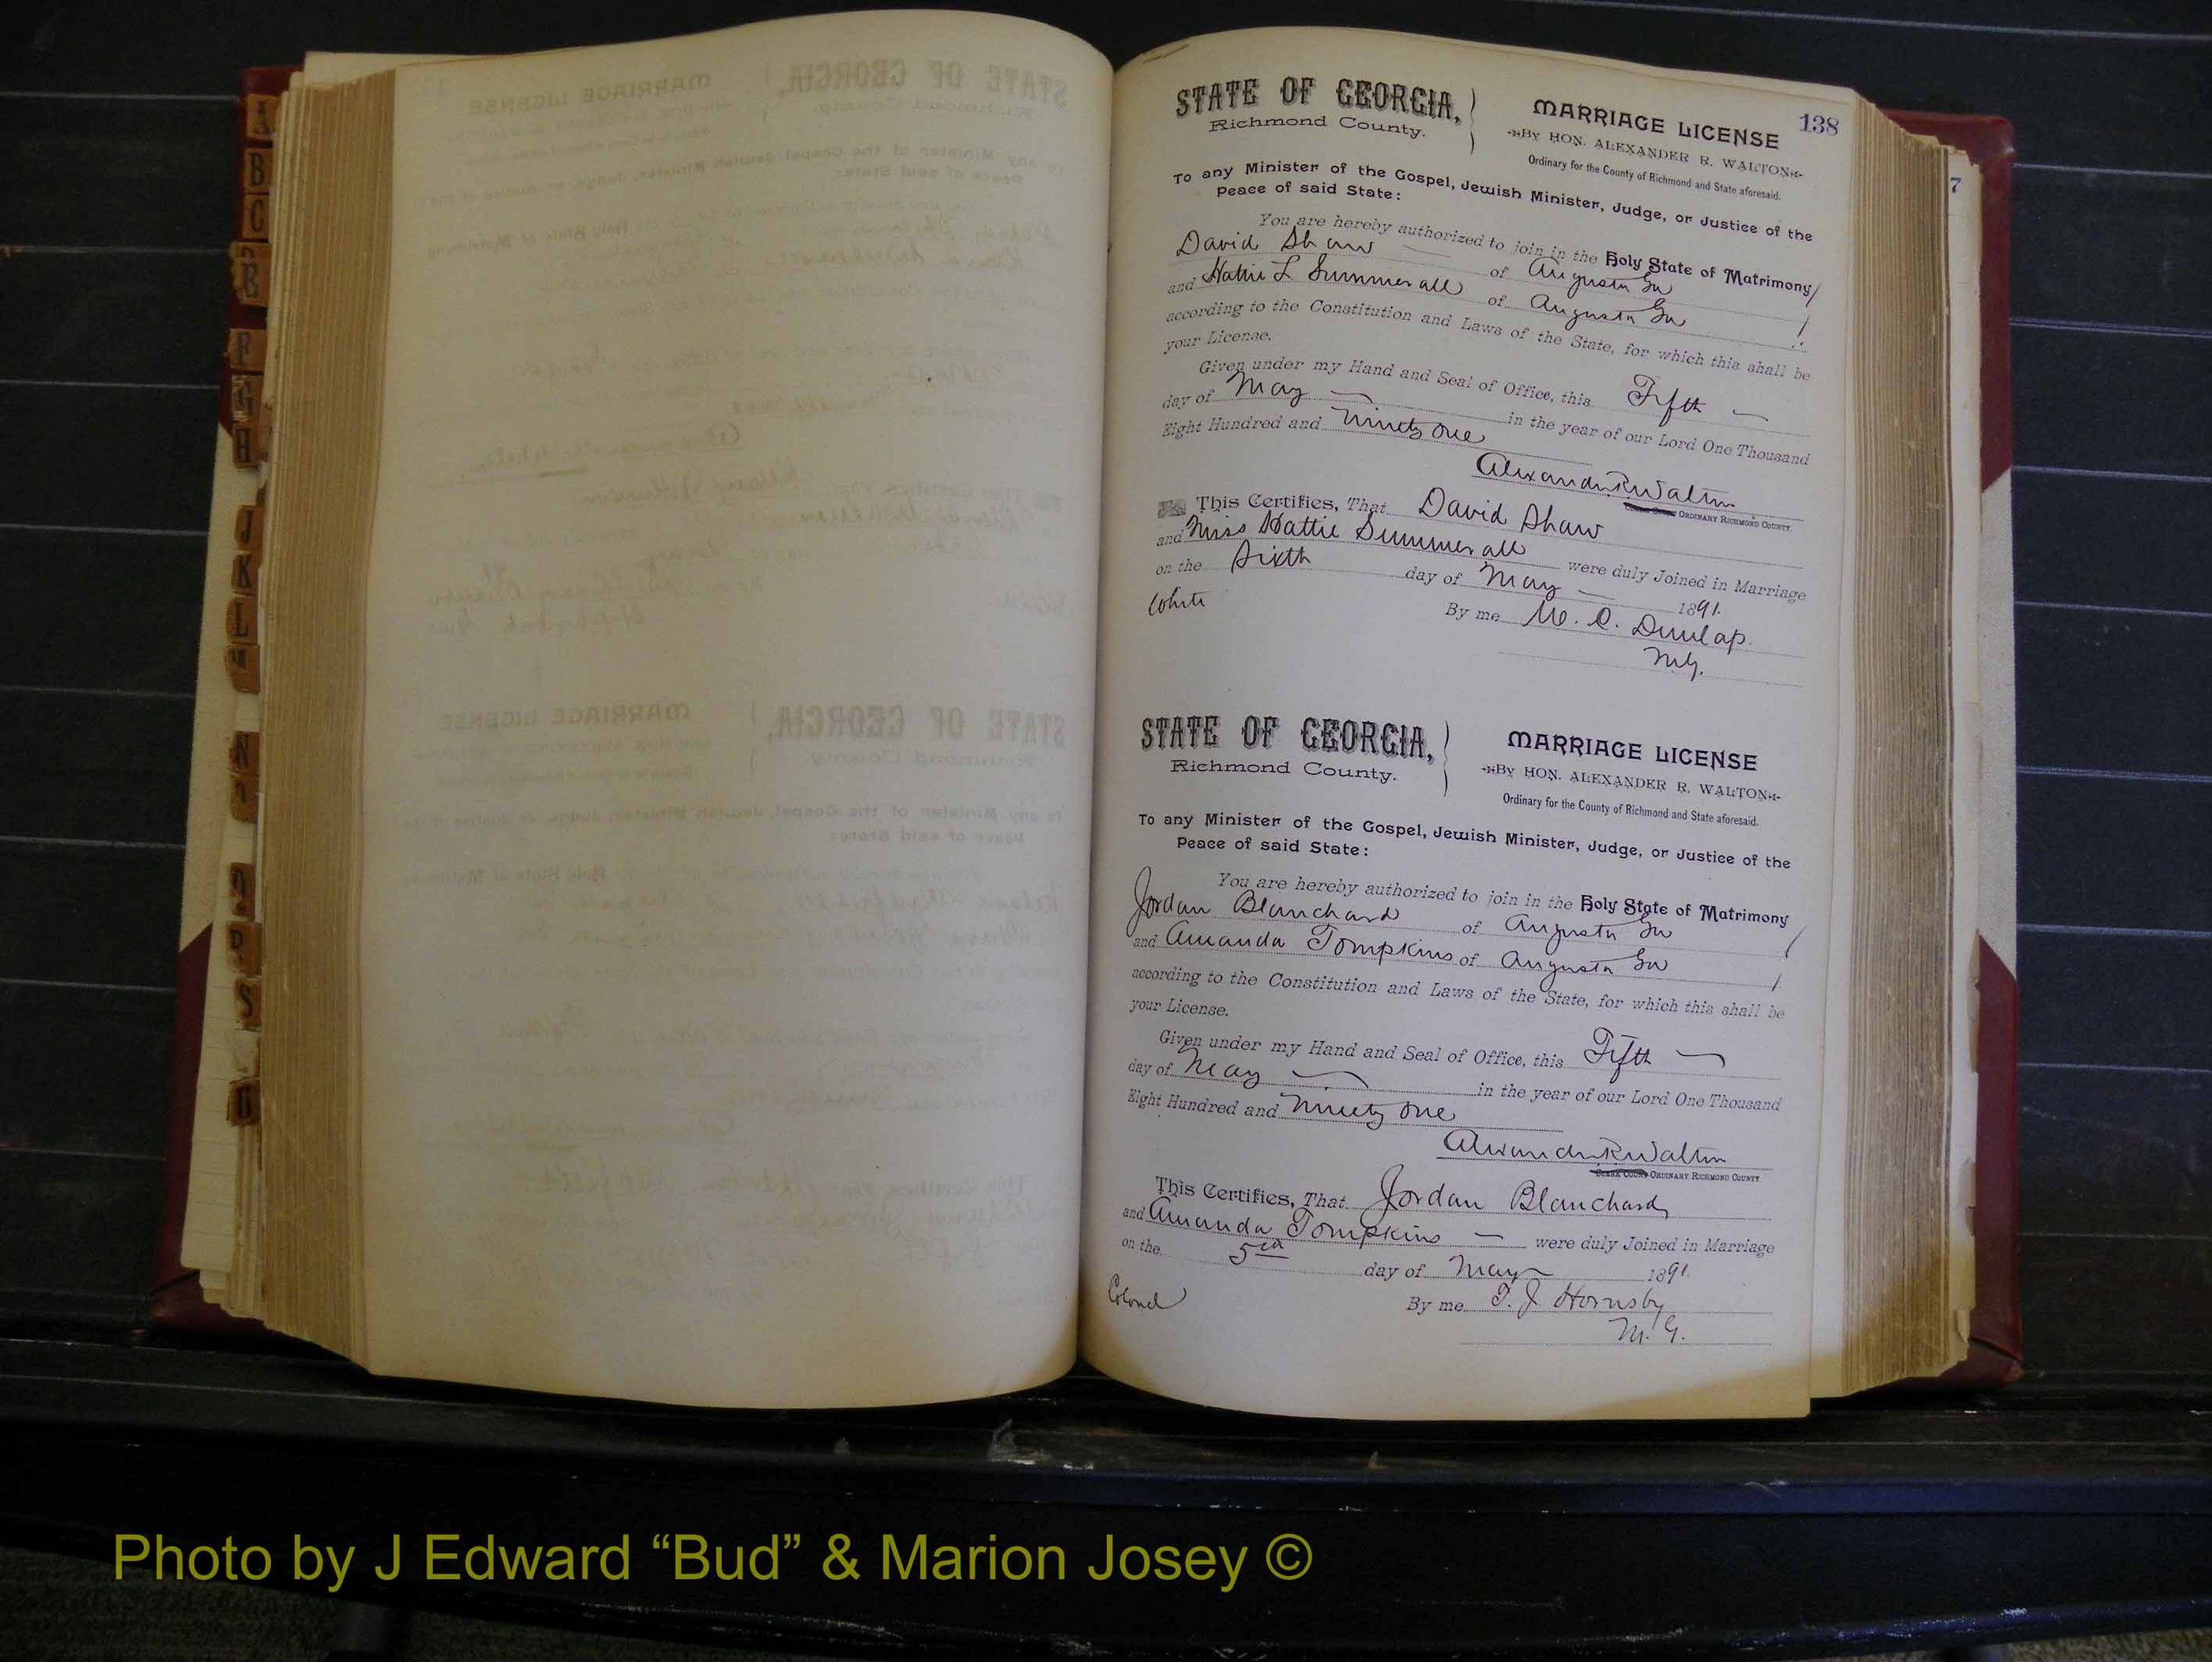 A
B
C
E
F
G
H
J
K
L
M
N
P
S
138
7
STATE OF GEORGIA,
Richmond County.
MARRIAGE LICENSE
By HON. ALEXANDER R. WALTON
Ordinary for the County of Richmond and State aforesaid.
To any Minister of the Gospel, Jewish Minister, Judge, or Justice of the
Peace of said State:
You are hereby authorized to join in the Holy State of Matrimony
David Shaw of Augusta Ga
and Hattie L Summerall of Augusta Ga
according to the Constitution and Laws of the State, for which this shall be
your License.
Given under my Hand and Seal of Office, this Fifth
day of May in the year of our Lord One Thousand
Eight Hundred and Ninety One
Alexander R Walton
ORDINARY RICHMOND COUNTY.
This Certifies, That David Shaw
and Miss Hattie Summerall were duly Joined in Marriage
on the Sixth day of May 1891.
White
By me W. C. Dunlap.
M.G.
STATE OF GEORGIA,
Richmond County.
MARRIAGE LICENSE
By HON. ALEXANDER R. WALTON
Ordinary for the County of Richmond and State aforesaid.
To any Minister of the Gospel, Jewish Minister, Judge, or Justice of the
Peace of said State:
You are hereby authorized to join in the Holy State of Matrimony
Jordan Blanchard of Augusta Ga
and Amanda Tompkins of Augusta Ga
according to the Constitution and Laws of the State, for which this shall be
your License.
Given under my Hand and Seal of Office, this Fifth
day of May in the year of our Lord One Thousand
Eight Hundred and Ninety One
Alexander R Walton
ORDINARY RICHMOND COUNTY
This Certifies, That Jordan Blanchard
and Amanda Tompkins were duly Joined in Marriage
on the 5th day of May 1891.
Colored
By me T. J. Hornsby
M. G.
Photo by J Edward “Bud” & Marion Josey ©